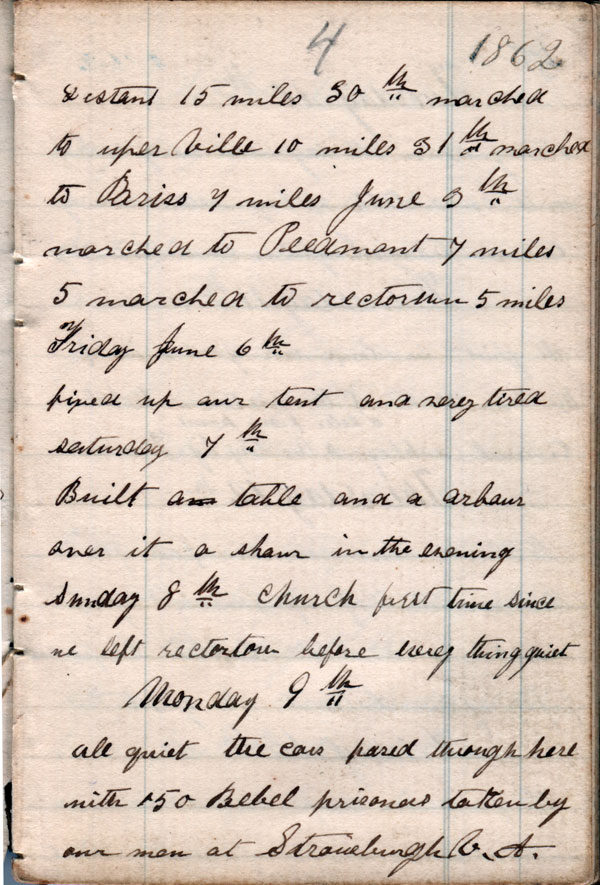 4 1862
distant 15 miles 30th marched
to uper Ville 10 miles 31th marched
to Pariss 7 miles June 3th
marched to Peedmont 7 miles
5 marched to rectorown 5 miles
on Friday June 6th
fixed up our tent and verey tired
saturday 7th
Built a table and a arbour
over it a shour in the evening
Sunday 8th church first time since
we left rectortown before every thing quiet
Monday 9th
all quiet the cars pased through here
with 150 Rebel prisoners taken by
our men at Strousburgh V.A.